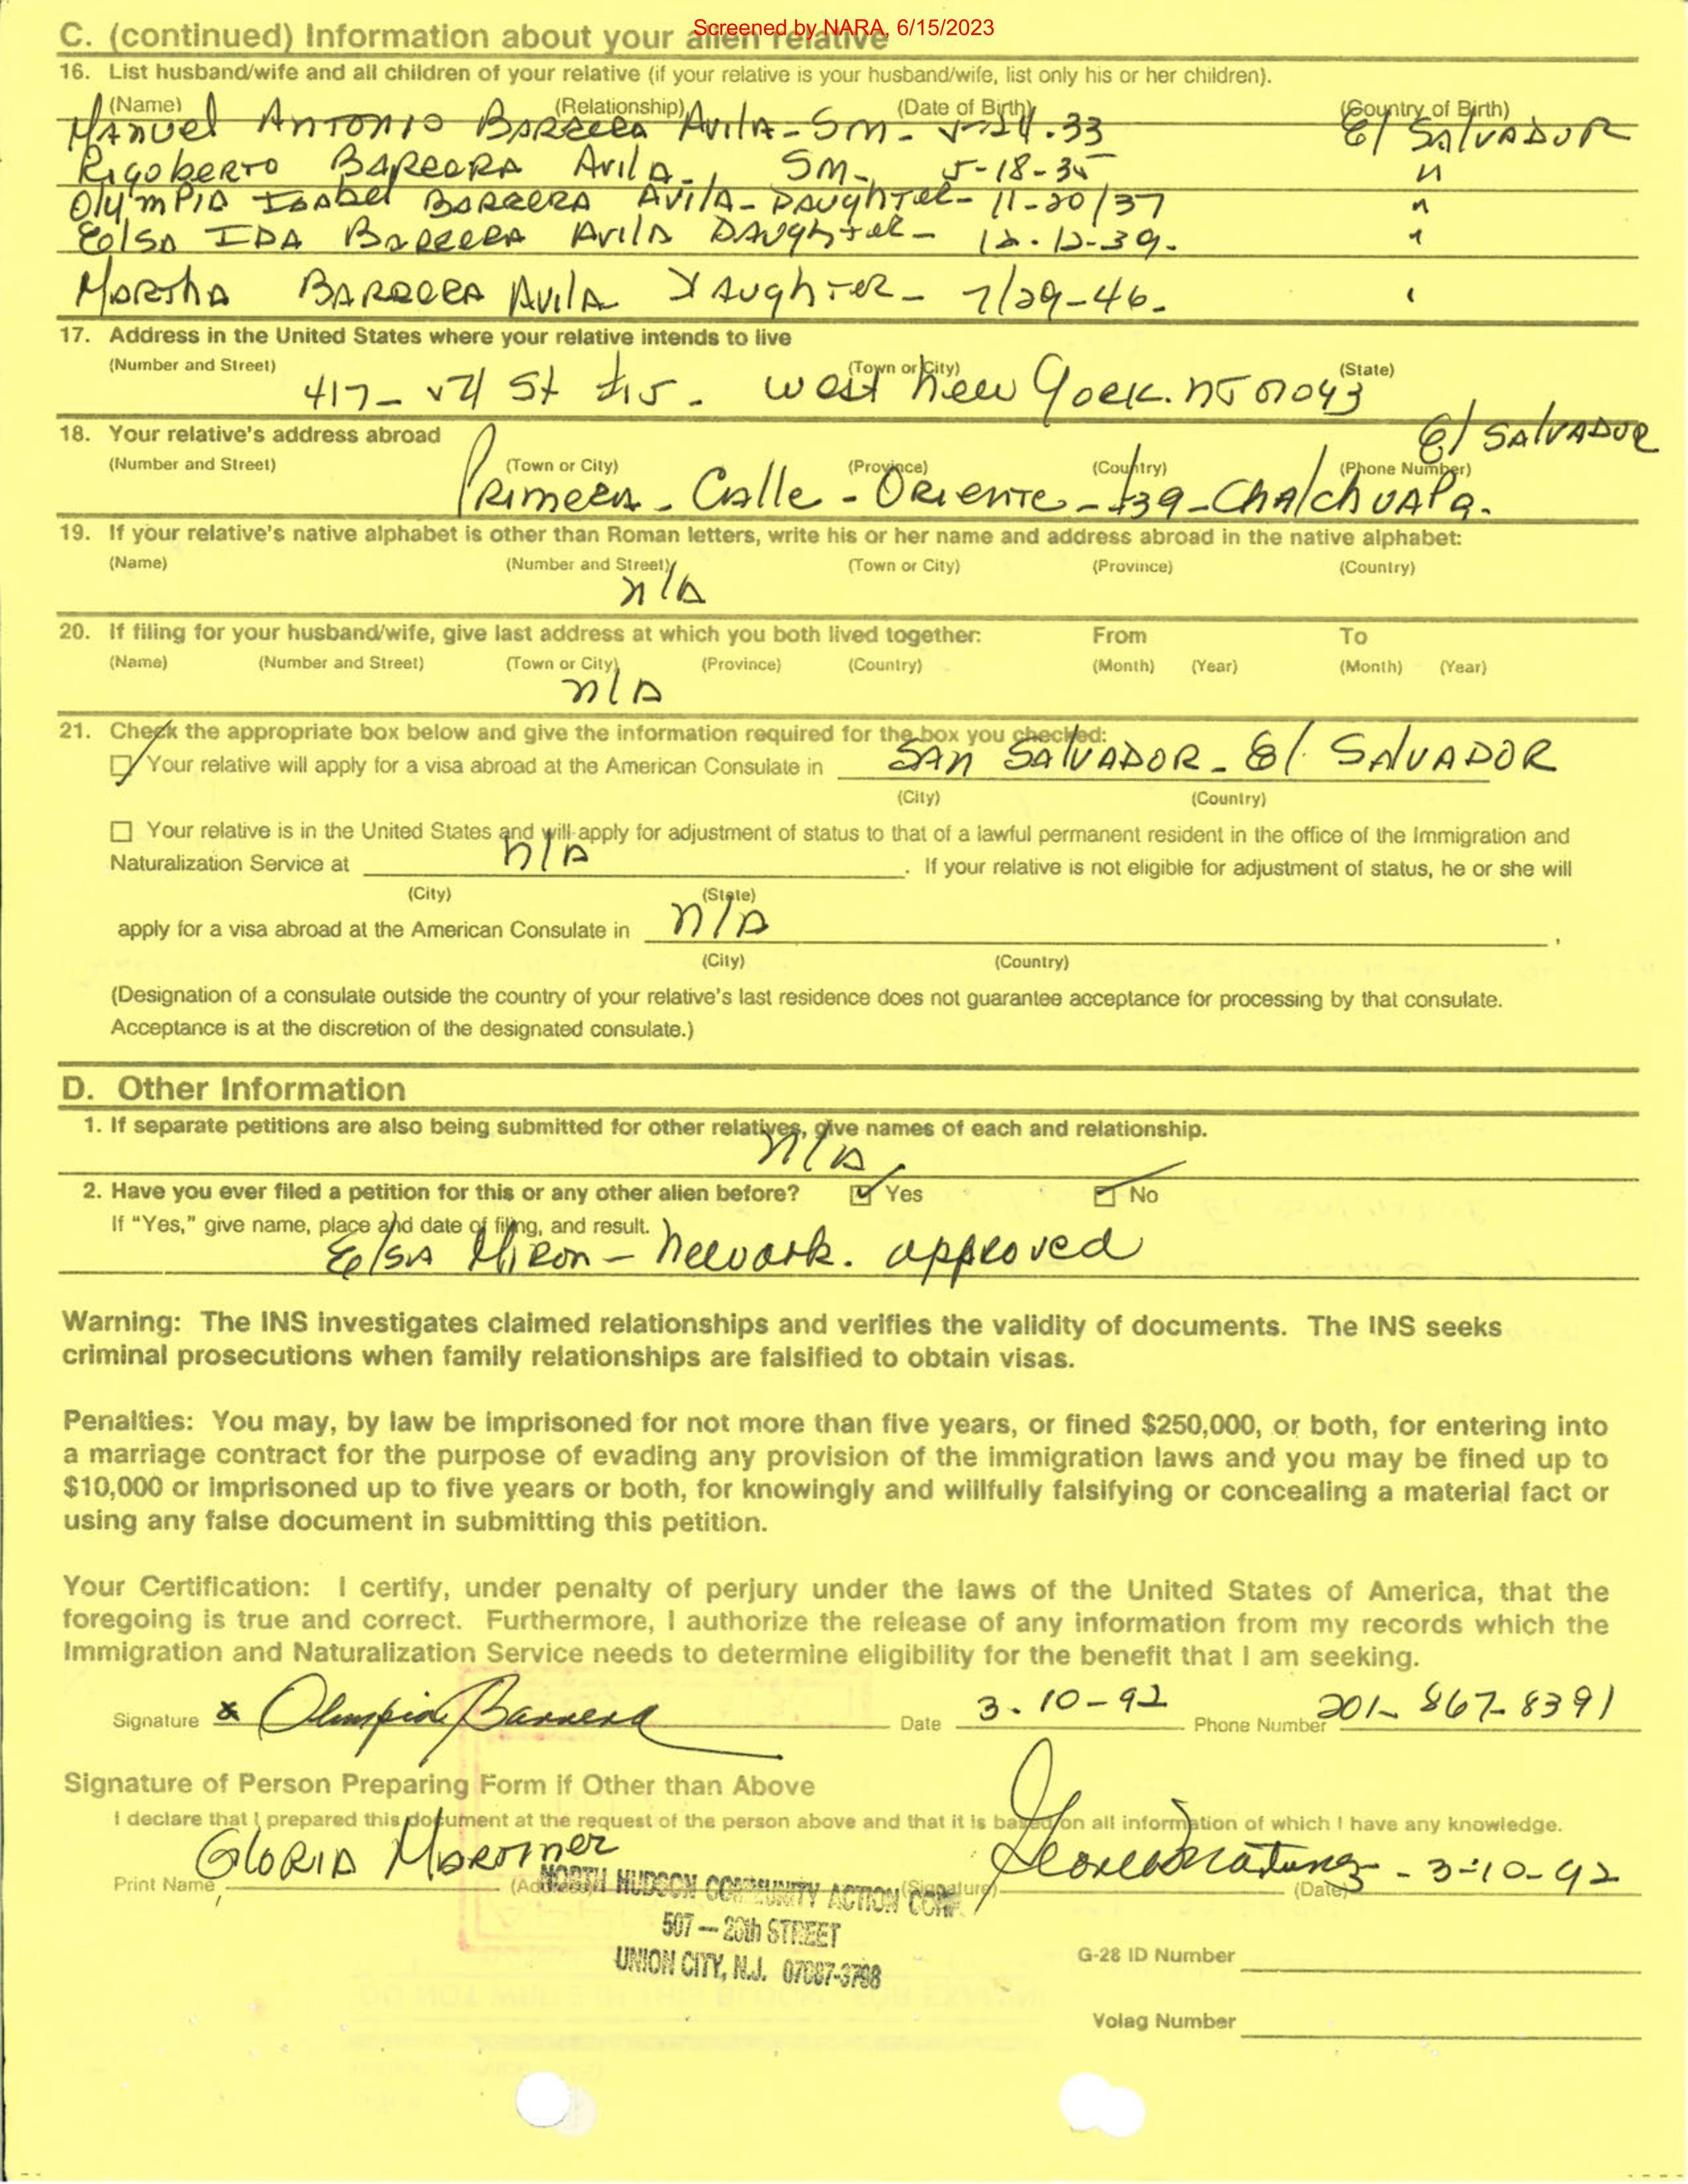 Screened by NARA, 6/15/2023
C. (continued) Information about your alien relative
16. List husband/wife and all children of your relative (if your relative is your husband/wife, list only his or her children).
(Name) (Relationship) (Date of Birth) (Country of Birth)
Manuel Antonio Barrera Avila - Son - 24.33 El Salvador
Rigoberto Barrera Avila - Son - 5-18-35 "
Olympia Isabel Barrera Avila - Daughter - 11-20/37 "
Elsa Ida Barrera Avila Daughter - 12-12-39. "
Martha Barrera Avila Daughter - 7/29-46. "
17. Address in the United States where your relative intends to live
(Number and Street) (Town or City) (State)
417- 54 St #15. West New York. NJ 07093
18. Your relative's address abroad El Salvador
(Number and Street) (Town or City) (Province) (Country) (Phone Number)
Primera - Calle - Oriente - #39 - Chalchuapa.
19. If your relative's native alphabet is other than Roman letters, write his or her name and address abroad in the native alphabet:
(Name) (Number and Street) (Town or City) (Province) (Country)
n/a
20. If filing for your husband/wife, give last address at which you both lived together: From To
(Name) (Number and Street) (Town or City) (Province) (Country) (Month) (Year) (Month) (Year)
n/a
21. Check the appropriate box below and give the information required for the box you checked:
Your relative will apply for a visa abroad at the American Consulate in San Salvador - El Salvador
(City) (Country)
Your relative is in the United States and will apply for adjustment of status to that of a lawful permanent resident in the office of the Immigration and
Naturalization Service at n/a . If your relative is not eligible for adjustment of status, he or she will
(City) (State)
apply for a visa abroad at the American Consulate in n/a ,
(City) (Country)
(Designation of a consulate outside the country of your relative's last residence does not guarantee acceptance for processing by that consulate.
Acceptance is at the discretion of the designated consulate.)
D. Other Information
1. If separate petitions are also being submitted for other relatives, give names of each and relationship.
n/a
2. Have you ever filed a petition for this or any other alien before? Yes No
If "Yes," give name, place and date of filing, and result.
Elsa Miron - Newark. approved
Warning: The INS investigates claimed relationships and verifies the validity of documents. The INS seeks
criminal prosecutions when family relationships are falsified to obtain visas.
Penalties: You may, by law be imprisoned for not more than five years, or fined $250,000, or both, for entering into
a marriage contract for the purpose of evading any provision of the immigration laws and you may be fined up to
$10,000 or imprisoned up to five years or both, for knowingly and willfully falsifying or concealing a material fact or
using any false document in submitting this petition.
Your Certification: I certify, under penalty of perjury under the laws of the United States of America, that the
foregoing is true and correct. Furthermore, I authorize the release of any information from my records which the
Immigration and Naturalization Service needs to determine eligibility for the benefit that I am seeking.
Signature x Olimpia Barrera Date 3-10-92 Phone Number 201-867-8391
Signature of Person Preparing Form if Other than Above
I declare that I prepared this document at the request of the person above and that it is based on all information of which I have any knowledge.
Print Name Gloria (Address) (Signature) - 3-10-92 (Date)
NORTH HUDSON COMMUNITY ACTION CORP.
507 — 26th STREET
UNION CITY, N.J. 07087-3798
G-28 ID Number
Volag Number